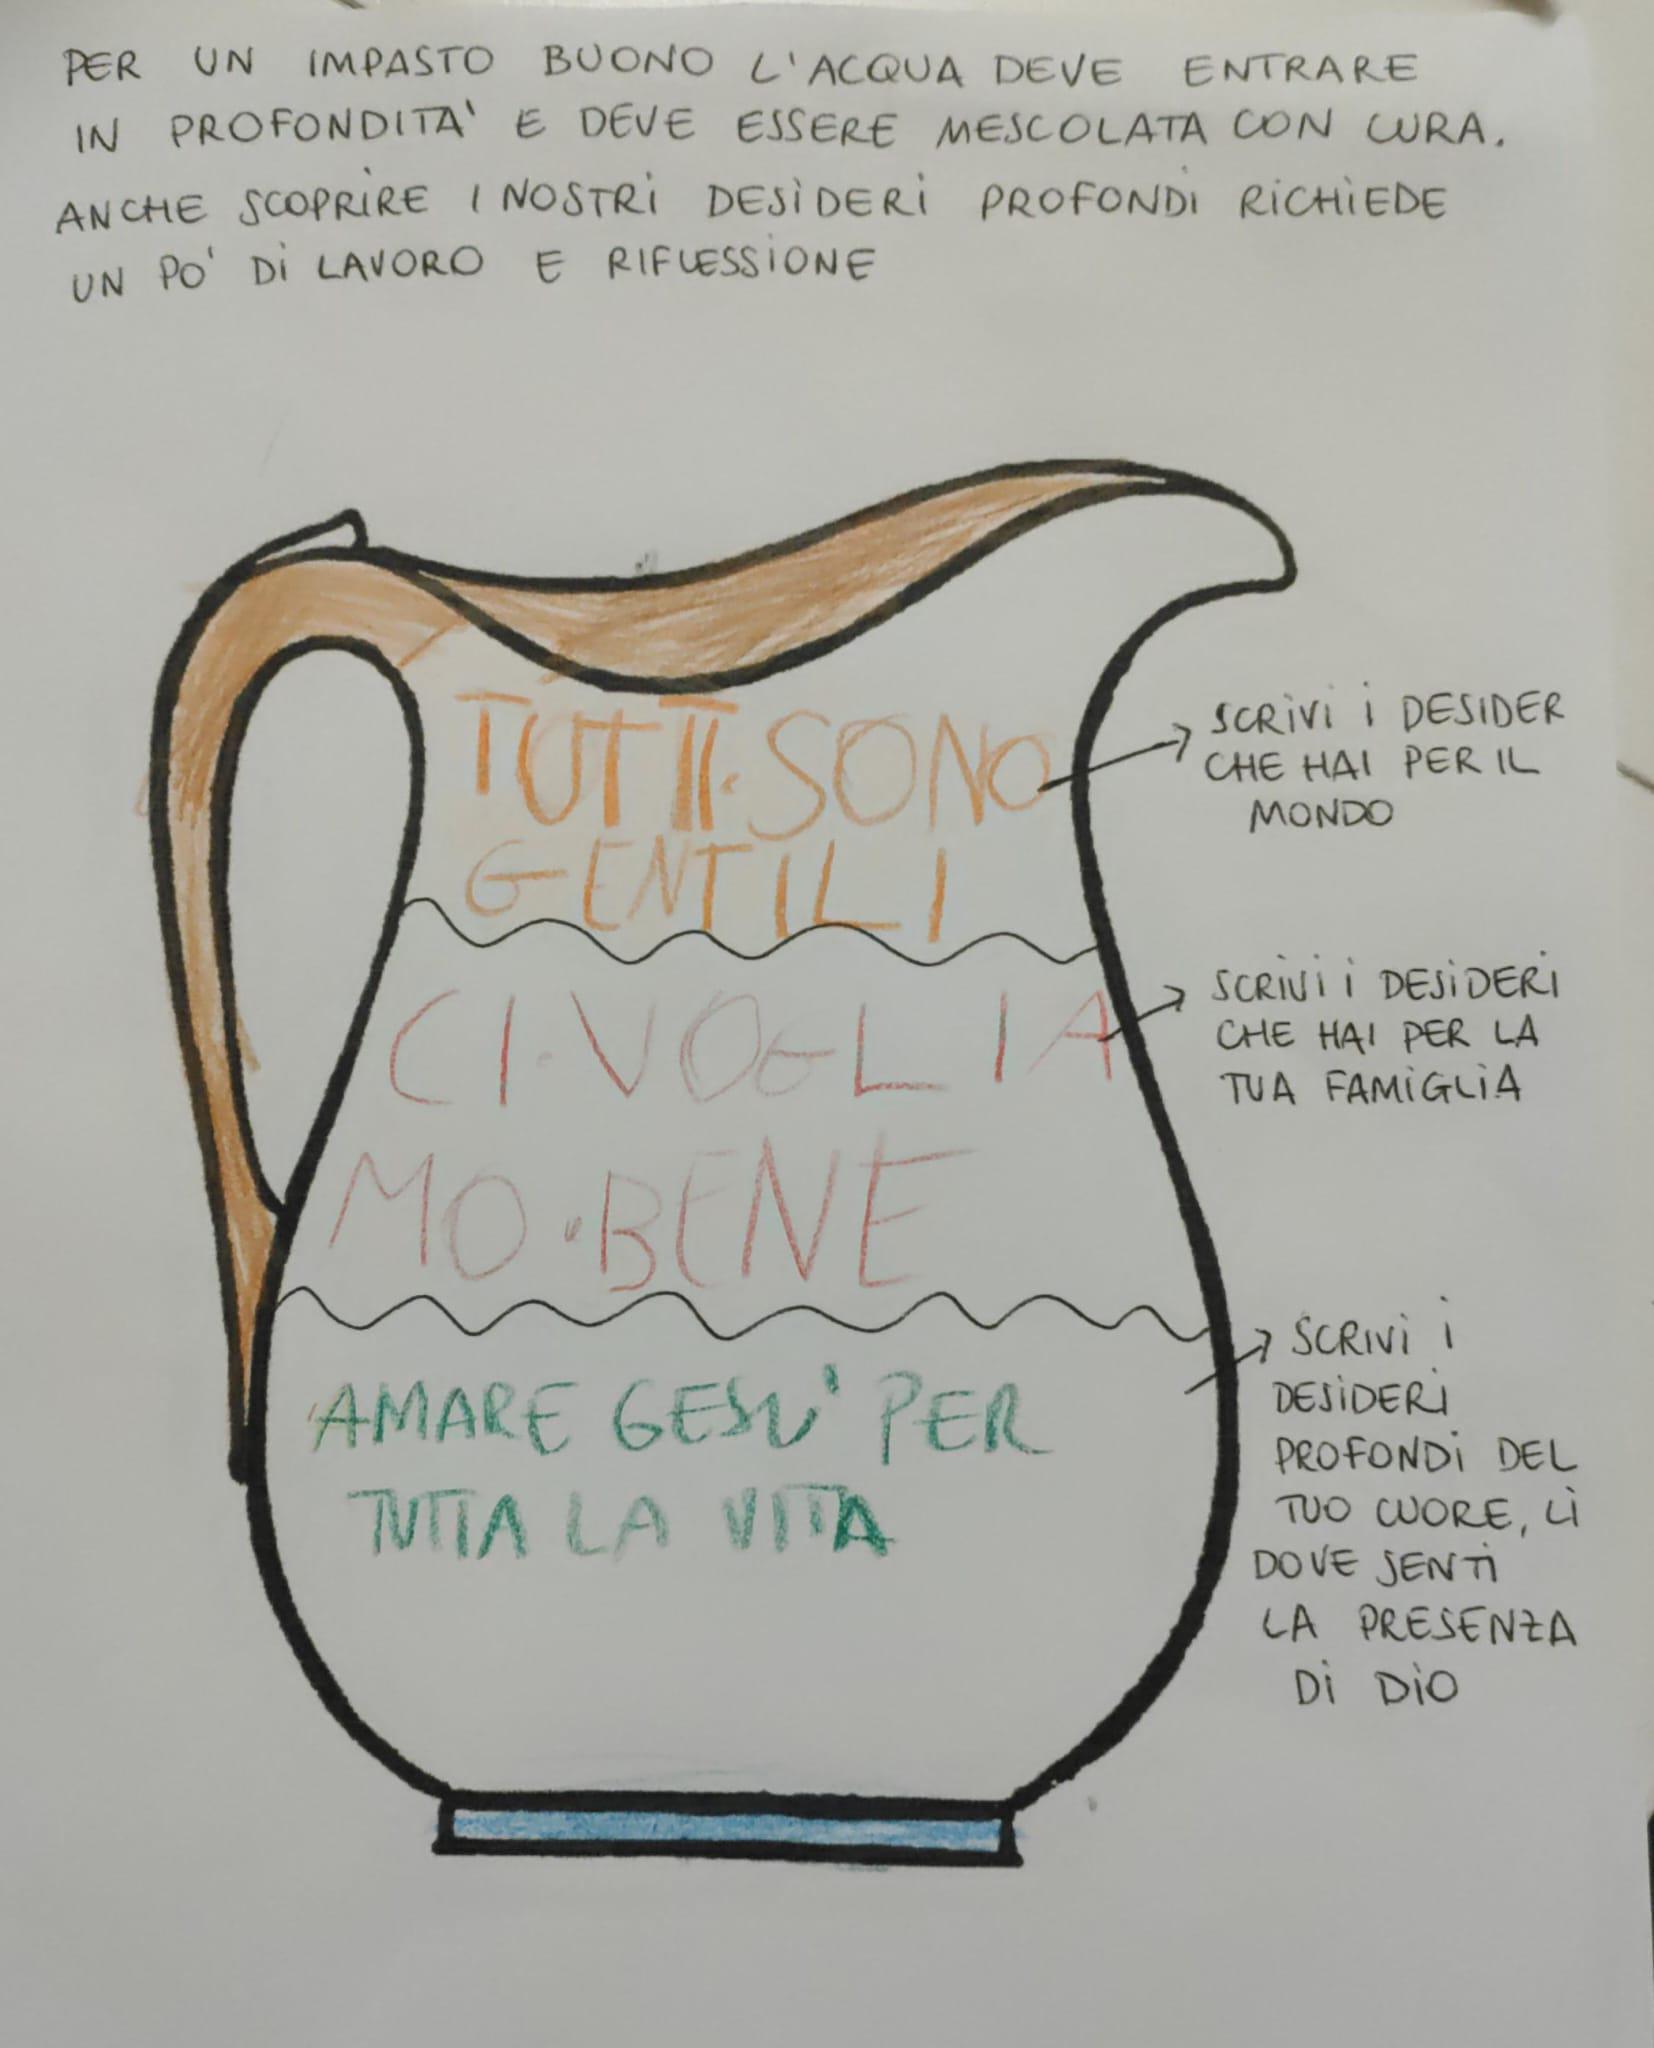 PER UN IMPASTO BUONO L'ACQUA DEVE ENTRARE
IN PROFONDITA' E DEVE ESSERE MESCOLATA CON CURA.
ANCHE SCOPRIRE I NOSTRI DESIDERI PROFONDI RICHIEDE
UN PO' DI LAVORO E RIFLESSIONE
TUTTI·SONO
GENTILI
SCRIVI I DESIDER
CHE HAI PER IL
MONDO
CI·VOGLIA
MO·BENE
SCRIVI I DESIDERI
CHE HAI PER LA
TUA FAMIGLIA
AMARE GESU' PER
TUTTA LA VITA
SCRIVI I
DESIDERI
PROFONDI DEL
TUO CUORE, LÌ
DOVE SENTI
LA PRESENZA
DI DIO